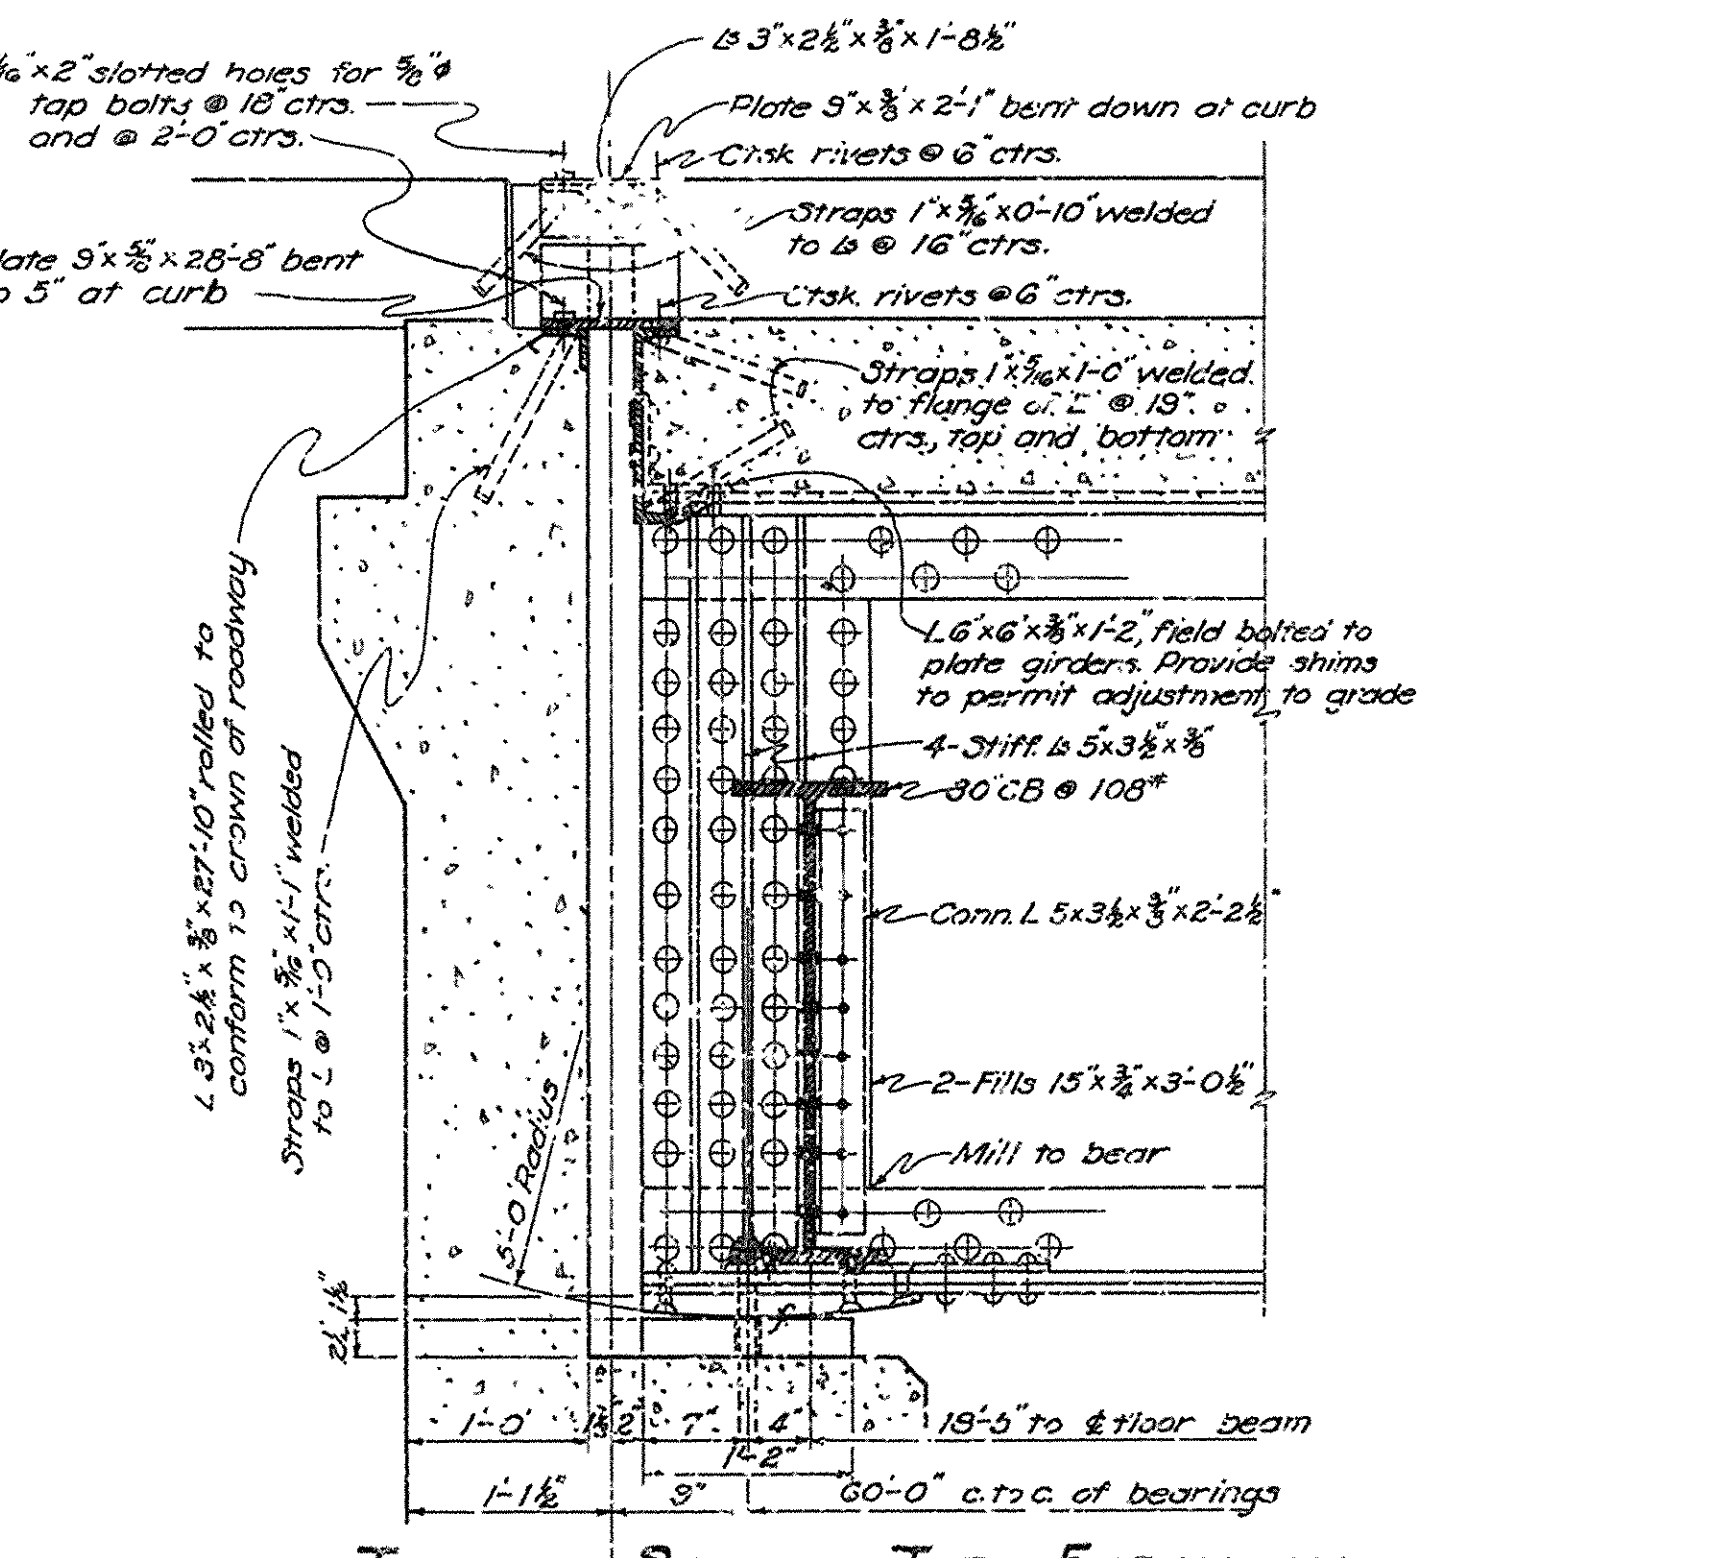 Ls 3"×2½"×⅜"×1'-8½"
×2" slotted holes for ⅝"φ
tap bolts @ 18" ctrs.
and @ 2'-0" ctrs.
Plate 9"×⅜"×2'-1" bent down at curb
Ctsk rivets @ 6" ctrs.
Straps 1"×5/16"×0'-10" welded
to Ls @ 16" ctrs.
late 9"×⅝"×28'-8" bent
5" at curb
Ctsk. rivets @ 6" ctrs.
Straps 1"×5/16×1'-0" welded
to flange of @ 19"
ctrs., top and bottom
L 6"×6"×⅜"×1'-2", field bolted to
plate girders. Provide shims
to permit adjustment to grade
4-Stiff. Ls 5"×3½"×⅜"
30" CB @ 108#
Conn. L 5×3½×⅜"×2'-2½"
2-Fills 15"×¾"×3'-0½"
Mill to bear
L 3"×2½"×⅜"×27'-10" rolled to
conform to crown of roadway
Straps 1"×5/16"×1'-1" welded
to L @ 1'-0" ctrs.
5'-0" Radius
2½" 1½"
1'-0" 1½" 2" 7" 4" 18'-5" to ℄ floor beam
1'-2"
1'-1½" 9" 60'-0" c. to c. of bearings